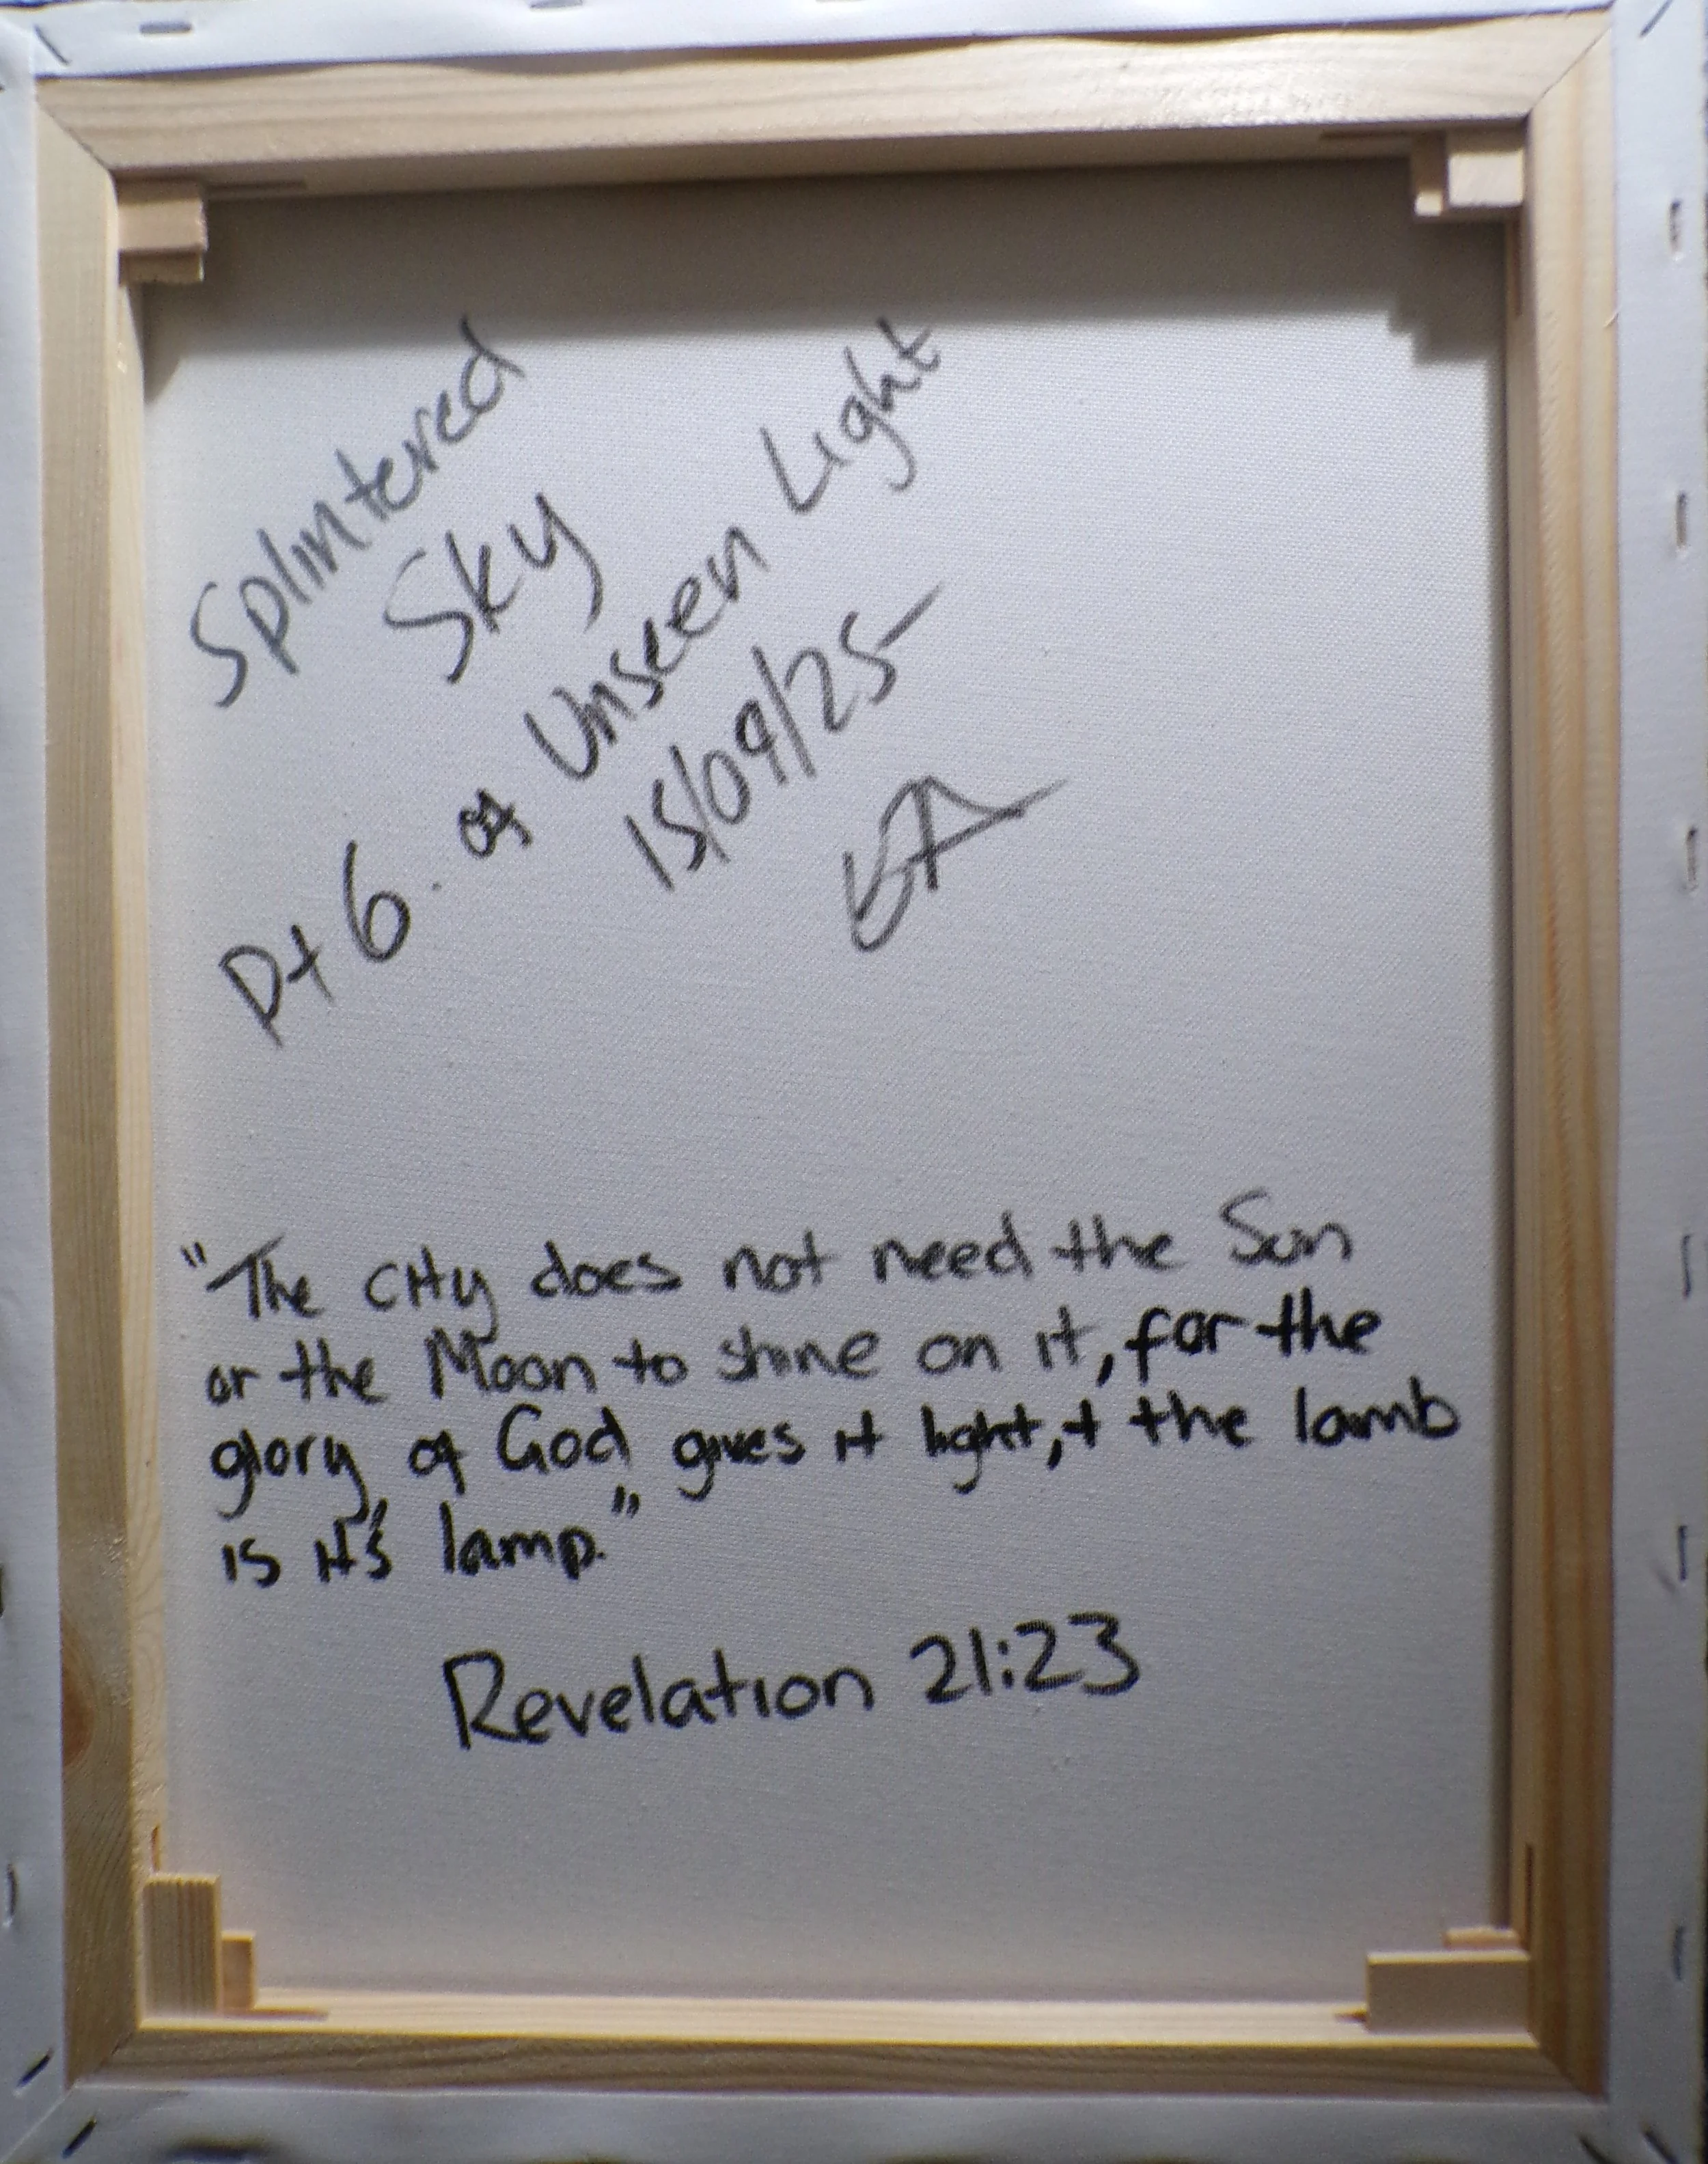 Splintered
Sky
Pt 6. of Unseen Light
15/09/25
"The city does not need the Sun
or the Moon to shine on it, for the
glory of God gives it light, + the lamb
is it's lamp."
Revelation 21:23